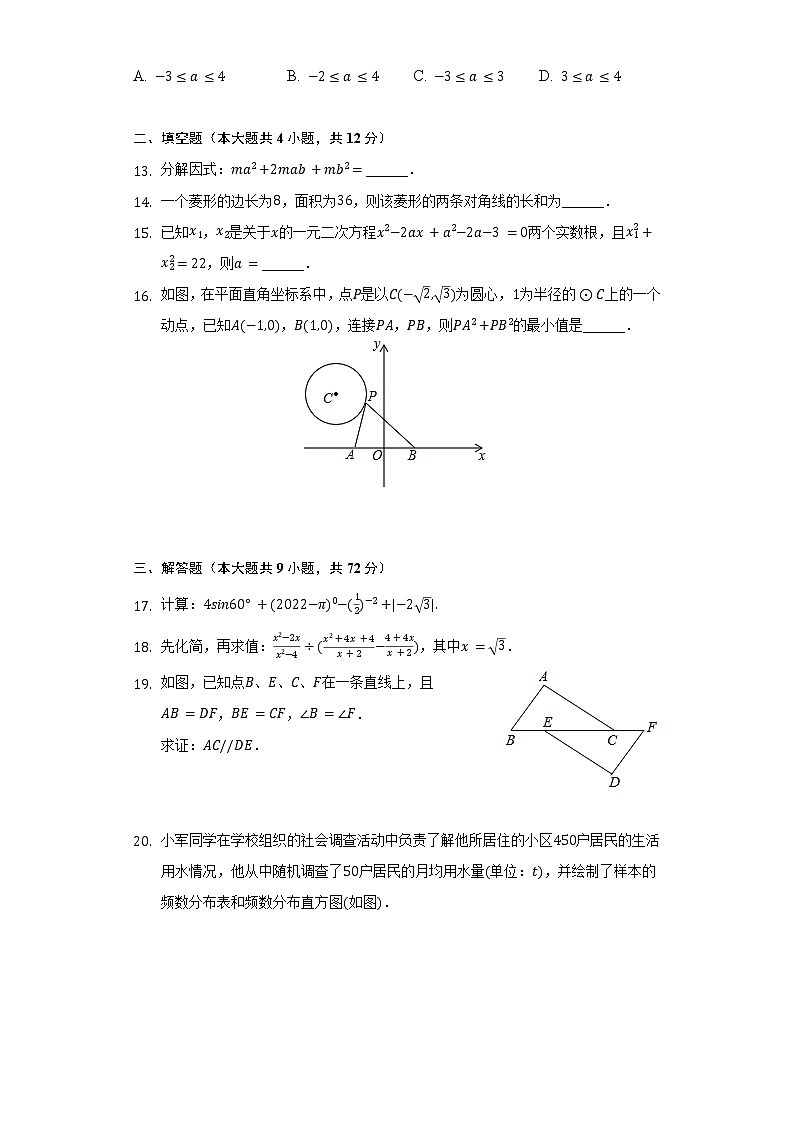 A. −3 ≤ a ≤ 4 B. −2 ≤ a ≤ 4 C. −3 ≤ a ≤ 3 D. 3 ≤ a ≤ 4
二、填空题（本大题共 4 小题，共 12 分）
13. 分解因式：ma²+2mab+mb²=______．
14. 一个菱形的边长为8，面积为36，则该菱形的两条对角线的长和为______．
15. 已知x₁，x₂是关于x的一元二次方程x²−2ax+a²−2a−3=0两个实数根，且x₁²+
x₂²=22，则a=______．
16. 如图，在平面直角坐标系中，点P是以C(−√2,√3)为圆心，1为半径的⊙C上的一个
动点，已知A(−1,0)，B(1,0)，连接PA，PB，则PA²+PB²的最小值是______．
y
C
P
A
O
B
x
三、解答题（本大题共 9 小题，共 72 分）
17. 计算：4sin60°+(2022−π)⁰−(1/2)⁻²+|−2√3|.
18. 先化简，再求值：(x²−2x)/(x²−4)÷((x²+4x+4)/(x+2)−(4+4x)/(x+2))，其中x=√3．
19. 如图，已知点B、E、C、F在一条直线上，且
AB=DF，BE=CF，∠B=∠F．
求证：AC//DE．
A
E
F
B
C
D
20. 小军同学在学校组织的社会调查活动中负责了解他所居住的小区450户居民的生活
用水情况，他从中随机调查了50户居民的月均用水量(单位：t)，并绘制了样本的
频数分布表和频数分布直方图(如图)．